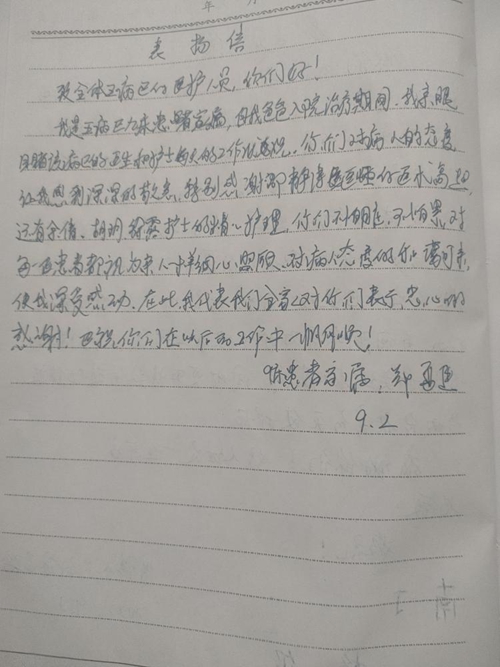 年 月
表扬信
致全体五病区的医护人员，你们好！
我是五病区力来患者家属，自我爸爸入院治疗期间，我亲眼
目睹该病区的医生和护士每天的工作状况，你们对病人的态度
让我感到深深的敬意，特别感谢郭静 医师的医术高超
还有余倩、胡玥 护士的精心护理，你们不怕脏、不怕累，对
每一位患者都视为亲人一样细心照顾，对病人态度的和蔼可亲，
使我深受感动，在此，我代表我们全家人对你们表示衷心的
感谢！再祝你们在以后的工作中一帆风顺！
患者家属：郑
9.2